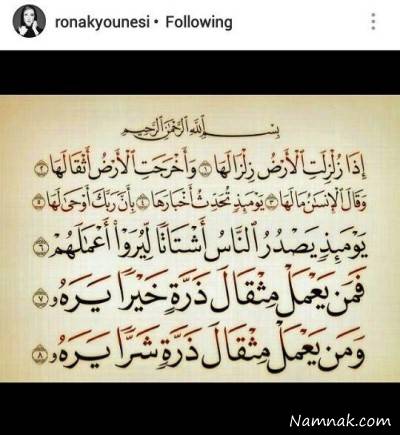 ronakyounesi • Following
بِسْمِ اللَّهِ الرَّحْمَٰنِ الرَّحِيمِ
إِذَا زُلْزِلَتِ الْأَرْضُ زِلْزَالَهَا ١ وَأَخْرَجَتِ الْأَرْضُ أَثْقَالَهَا ٢
وَقَالَ الْإِنسَٰنُ مَا لَهَا ٣ يَوْمَئِذٍ تُحَدِّثُ أَخْبَارَهَا ٤ بِأَنَّ رَبَّكَ أَوْحَىٰ لَهَا ٥
يَوْمَئِذٍ يَصْدُرُ النَّاسُ أَشْتَاتًا لِّيُرَوْا أَعْمَٰلَهُمْ ٦
فَمَن يَعْمَلْ مِثْقَالَ ذَرَّةٍ خَيْرًا يَرَهُۥ ٧
وَمَن يَعْمَلْ مِثْقَالَ ذَرَّةٍ شَرًّا يَرَهُۥ ٨
Namnak.com